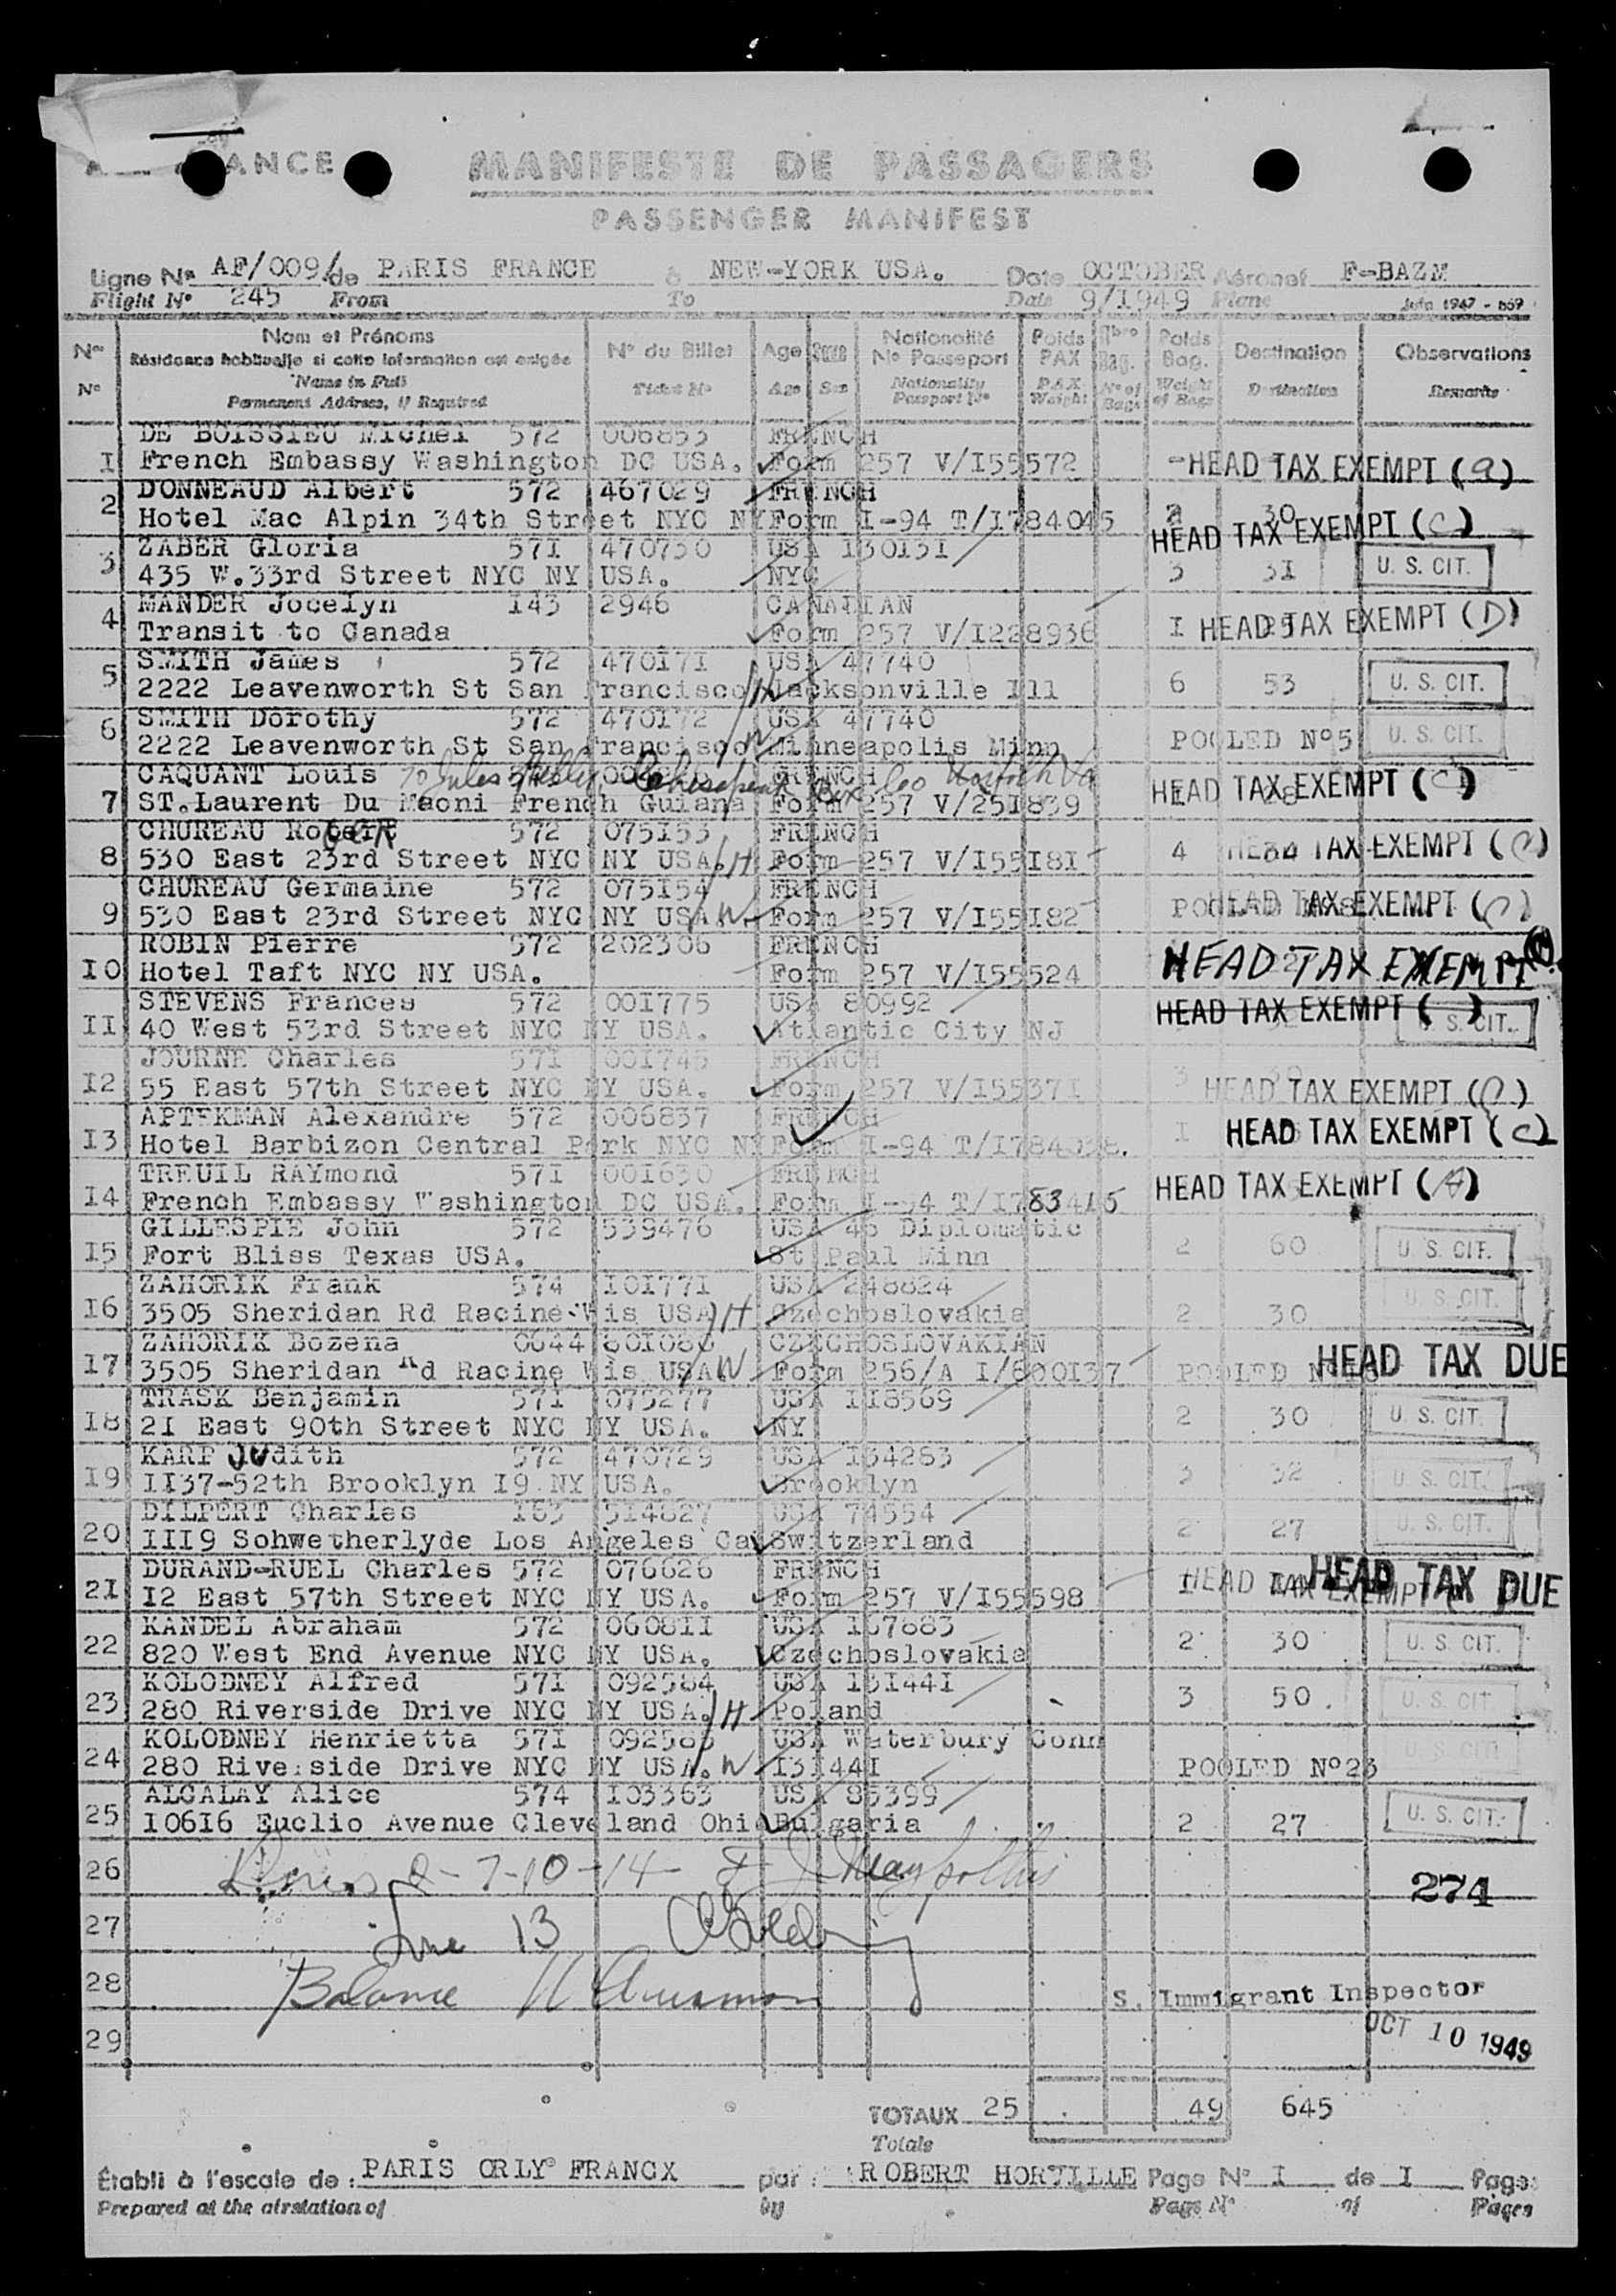 ANCE
MANIFESTE DE PASSAGERS
PASSENGER MANIFEST
Ligne No AF/009/ de PARIS FRANCE à NEW-YORK USA. Date OCTOBER Aéronef F-BAZM
Flight No 245 From To Date 9/I949 Plane Juin 1947 - 869
Nos Nom et Prénoms No du Billet Age Sexe Nationalité Poids Nbre Poids Destination Observations
Résidence habituelle si cette information est exigée No Passeport PAX Bag. Bag.
No Name in Full Ticket No Age Sex Nationality PAX No of Weight Destination Remarks
Permanent Address, if Required Passport No Weight Bags of Bags
DE BOISSIEU Michel 572 006853 FRENCH
I French Embassy Washington DC USA. Form 257 V/I55572 HEAD TAX EXEMPT (a)
DONNEAUD Albert 572 467029 FRENCH
2 Hotel Mac Alpin 34th Street NYC NY Form I-94 T/I784045 2 30 HEAD TAX EXEMPT (C)
ZABER Gloria 571 470730 USA I30I3I
3 435 W.33rd Street NYC NY USA. NYC 3 3I U. S. CIT.
MANDER Jocelyn I43 2946 CANADIAN
4 Transit to Canada Form 257 V/I228936 I HEAD TAX EXEMPT (D)
SMITH James 572 470I7I USA 47740
5 2222 Leavenworth St San Francisco H Jacksonville Ill 6 53 U. S. CIT.
SMITH Dorothy 572 470I72 USA 47740
6 2222 Leavenworth St San Francisco W Minneapolis Minn POOLED No5 U. S. CIT.
CAQUANT Louis FRENCH
7 ST.Laurent Du Maoni French Guiana Form 257 V/25I839 HEAD TAX EXEMPT (C)
CHUREAU Robert 572 075I53 FRENCH
8 530 East 23rd Street NYC NY USA. H Form 257 V/I55I8I 4 34 HEAD TAX EXEMPT
CHUREAU Germaine 572 075I54 FRENCH
9 530 East 23rd Street NYC NY USA W Form 257 V/I55I82 POOLED No8 HEAD TAX EXEMPT
ROBIN Pierre 572 202306 FRENCH
I0 Hotel Taft NYC NY USA. Form 257 V/I55524 HEAD TAX EXEMPT
STEVENS Frances 572 00I775 USA 80992 HEAD TAX EXEMPT ( )
II 40 West 53rd Street NYC NY USA. Atlantic City NJ U. S. CIT.
JOURNE Charles 57I 00I745 FRENCH
I2 55 East 57th Street NYC NY USA. Form 257 V/I5537I 3 HEAD TAX EXEMPT
APTEKMAN Alexandre 572 006837 FRENCH
I3 Hotel Barbizon Central Park NYC NY Form I-94 T/I784038. I HEAD TAX EXEMPT (C)
TREUIL RAYmond 57I 00I630 FRENCH
I4 French Embassy Washington DC USA. Form I-94 T/I783415 HEAD TAX EXEMPT (A)
GILLESPIE John 572 539476 USA 45 Diplomatic
I5 Fort Bliss Texas USA. St Paul Minn 2 60 U. S. CIT.
ZAHORIK Frank 574 I0I77I USA 248824
I6 3505 Sheridan Rd Racine Wis USA H Czechoslovakia 2 30 U. S. CIT.
ZAHORIK Bozena 0644 60I086 CZECHOSLOVAKIAN
I7 3505 Sheridan Rd Racine Wis USA W Form 256/A I/600I37 POOLED HEAD TAX DUE
TRASK Benjamin 57I 075277 USA II8569
I8 2I East 90th Street NYC NY USA. NY 2 30 U. S. CIT.
KARP Judith 572 470729 USA I34283
I9 II37-52th Brooklyn I9 NY USA. Brooklyn 3 32 U. S. CIT.
DILPERT Charles I63 5I4827 USA 74554
20 III9 Sohwetherlyde Los Angeles Ca Switzerland 2 27 U. S. CIT.
DURAND-RUEL Charles 572 076626 FRENCH
2I I2 East 57th Street NYC NY USA. Form 257 V/I55598 I HEAD TAX EXEMPT HEAD TAX DUE
KANDEL Abraham 572 0608II USA I67883
22 820 West End Avenue NYC NY USA. Czechoslovakia 2 30 U. S. CIT.
KOLODNEY Alfred 57I 092584 USA I3I44I
23 280 Riverside Drive NYC NY USA. H Poland 3 50 U. S. CIT
KOLODNEY Henrietta 57I 092585 USA Waterbury Conn
24 280 Riverside Drive NYC NY USA. W I3I44I POOLED No23 U. S. CIT
ALCALAY Alice 574 I03363 USA 85399
25 I06I6 Euclio Avenue Cleveland Ohio Bulgaria 2 27 U. S. CIT.
26 2-7-10-14 274
27 13
28 Balance S. Immigrant Inspector
29 OCT 10 1949
TOTAUX 25 49 645
Totals
Établi à l'escale de : PARIS ORLY FRANCX par : ROBERT HORTILLE Page No I de I Pages
Prepared at the airstation of by Page No of Pages